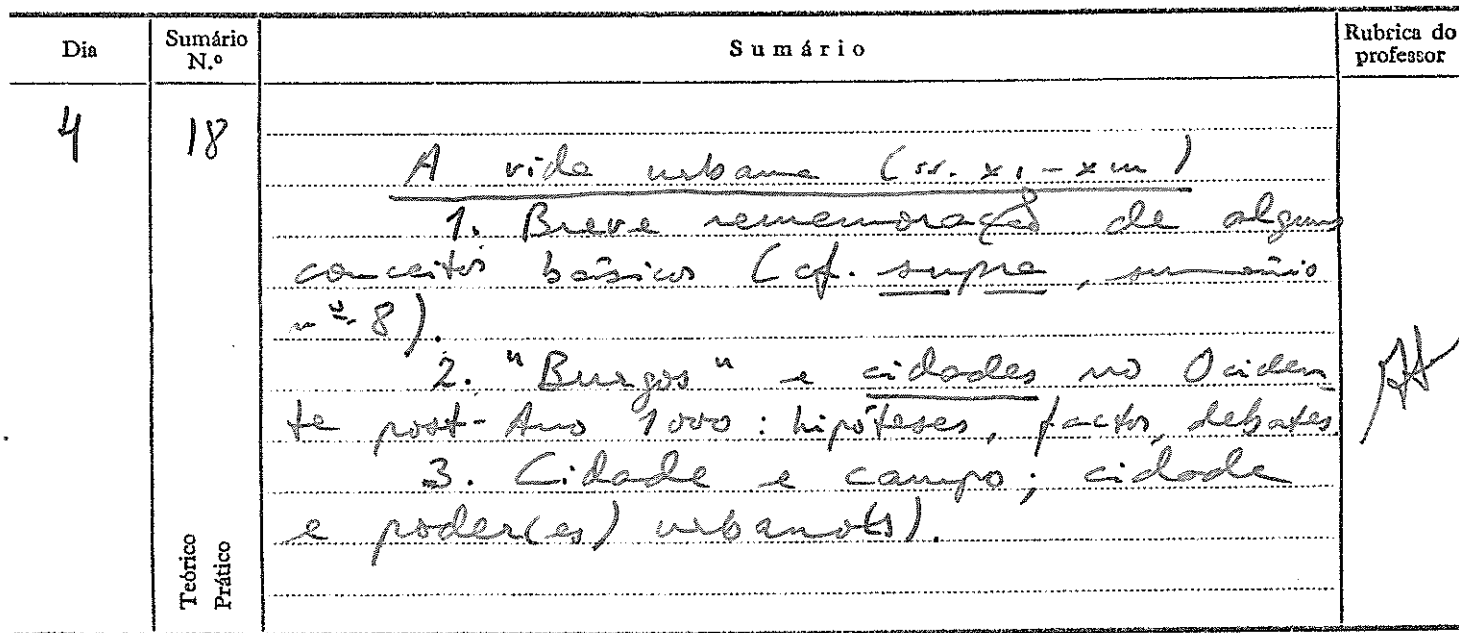 Dia
Sumário N.º
Sumário
Rubrica do professor
4
18
A vida urbana (ss. XI-XIII)
1. Breve rememoração de alguns
conceitos básicos (cf. supra, sumário
nº 8).
2. "Burgos" e cidades no Ociden
te post-Ano 1000: hipóteses, factos, debates.
3. Cidade e campo; cidade
e poder(es) urbano(s).
Teórico
Prático